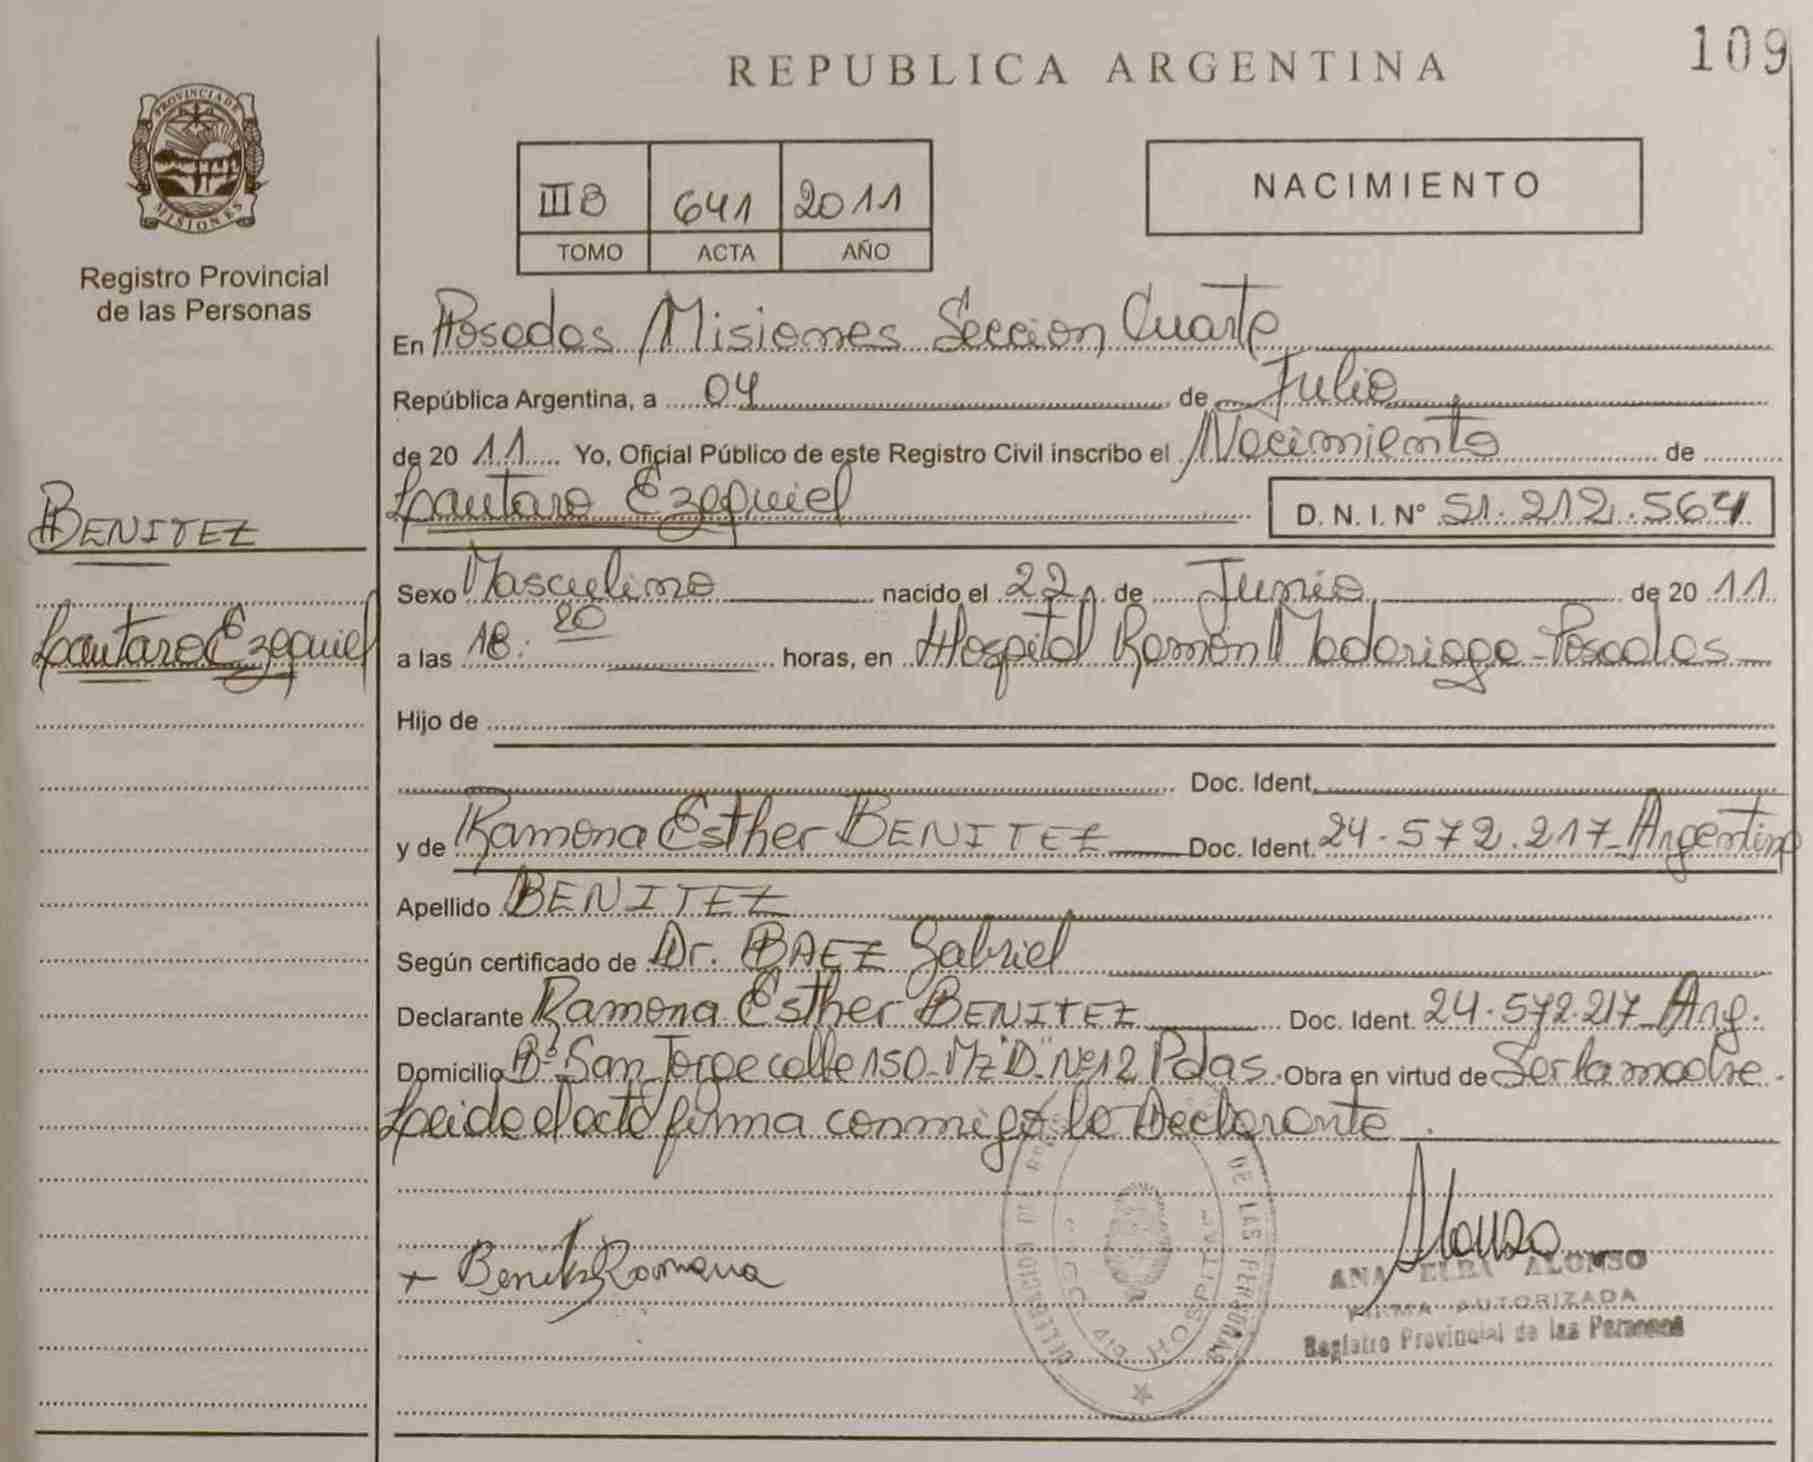 109
REPUBLICA ARGENTINA
PROVINCIA DE
MISIONES
Registro Provincial
de las Personas
III B 641 2011
TOMO ACTA AÑO
NACIMIENTO
En Posadas Misiones Sección Cuarta
República Argentina, a 04 de Julio
de 20 11 Yo, Oficial Público de este Registro Civil inscribo el Nacimiento de
BENITEZ
Lautaro Ezequiel
Lautaro Ezequiel D. N. I. N° 51.212.564
Sexo Masculino nacido el 22 de Junio de 20 11
a las 18:20 horas, en Hospital Ramón Madariaga - Posadas
Hijo de
Doc. Ident.
y de Ramona Esther BENITEZ Doc. Ident. 24.572.217 - Argentina
Apellido BENITEZ
Según certificado de Dr. BAEZ Gabriel
Declarante Ramona Esther BENITEZ Doc. Ident. 24.572.217 - Arg.
Domicilio B° San Jorge calle 150 - Mz "D" N°12 Pdas. Obra en virtud de Ser la madre.
Leida el acta firma conmigo la Declarante.
Benitez Ramona
Alonso
ANA ELBA ALONSO
FIRMA AUTORIZADA
Registro Provincial de las Personas
DE LAS PERSONAS
HOSPITAL